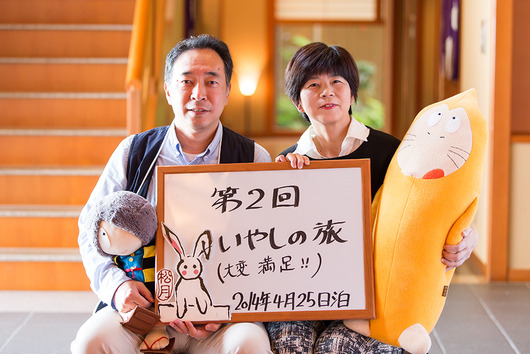 第2回
いやしの旅
(大変 満足!!)
松月
2014年4月25日泊